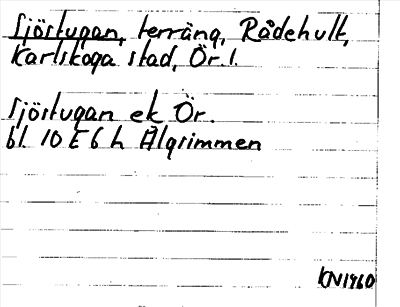 Sjöstugan, terräng, Rådehult,
Karlskoga stad, Ör. l.
Sjöstugan ek Ör.
bl. 10 E 6 h Älgrimmen
KN1960